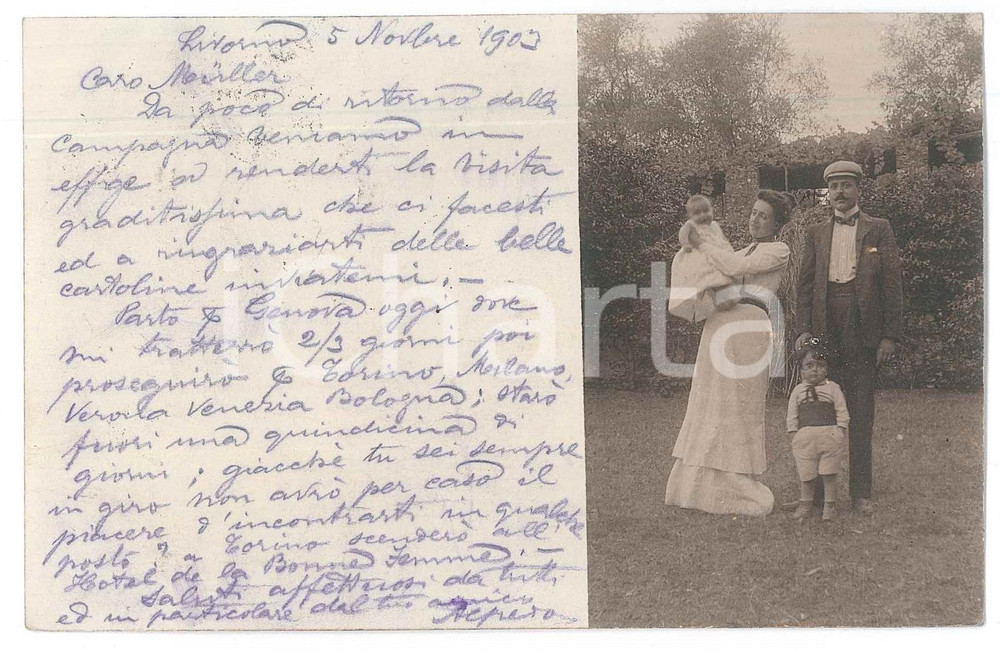 Livorno 5 Novbre 1903
Caro Müller
Da poco di ritorno dalla
campagna veniamo in
effige a renderti la visita
graditissima che ci facesti
ed a ringraziarti delle belle
cartoline inviatemi. —
Parto p Genova oggi dove
mi tratterrò 2/3 giorni poi
proseguirò p Torino, Milano,
Verona Venezia Bologna; starò
fuori una quindicina di
giorni; giacchè tu sei sempre
in giro non avrò per caso il
piacere d'incontrarti in qualche
posto? a Torino scenderò all'
Hotel de la Bonne Femme. —
Saluti affettuosi da tutti
ed in particolare dal tuo amico
iCharta